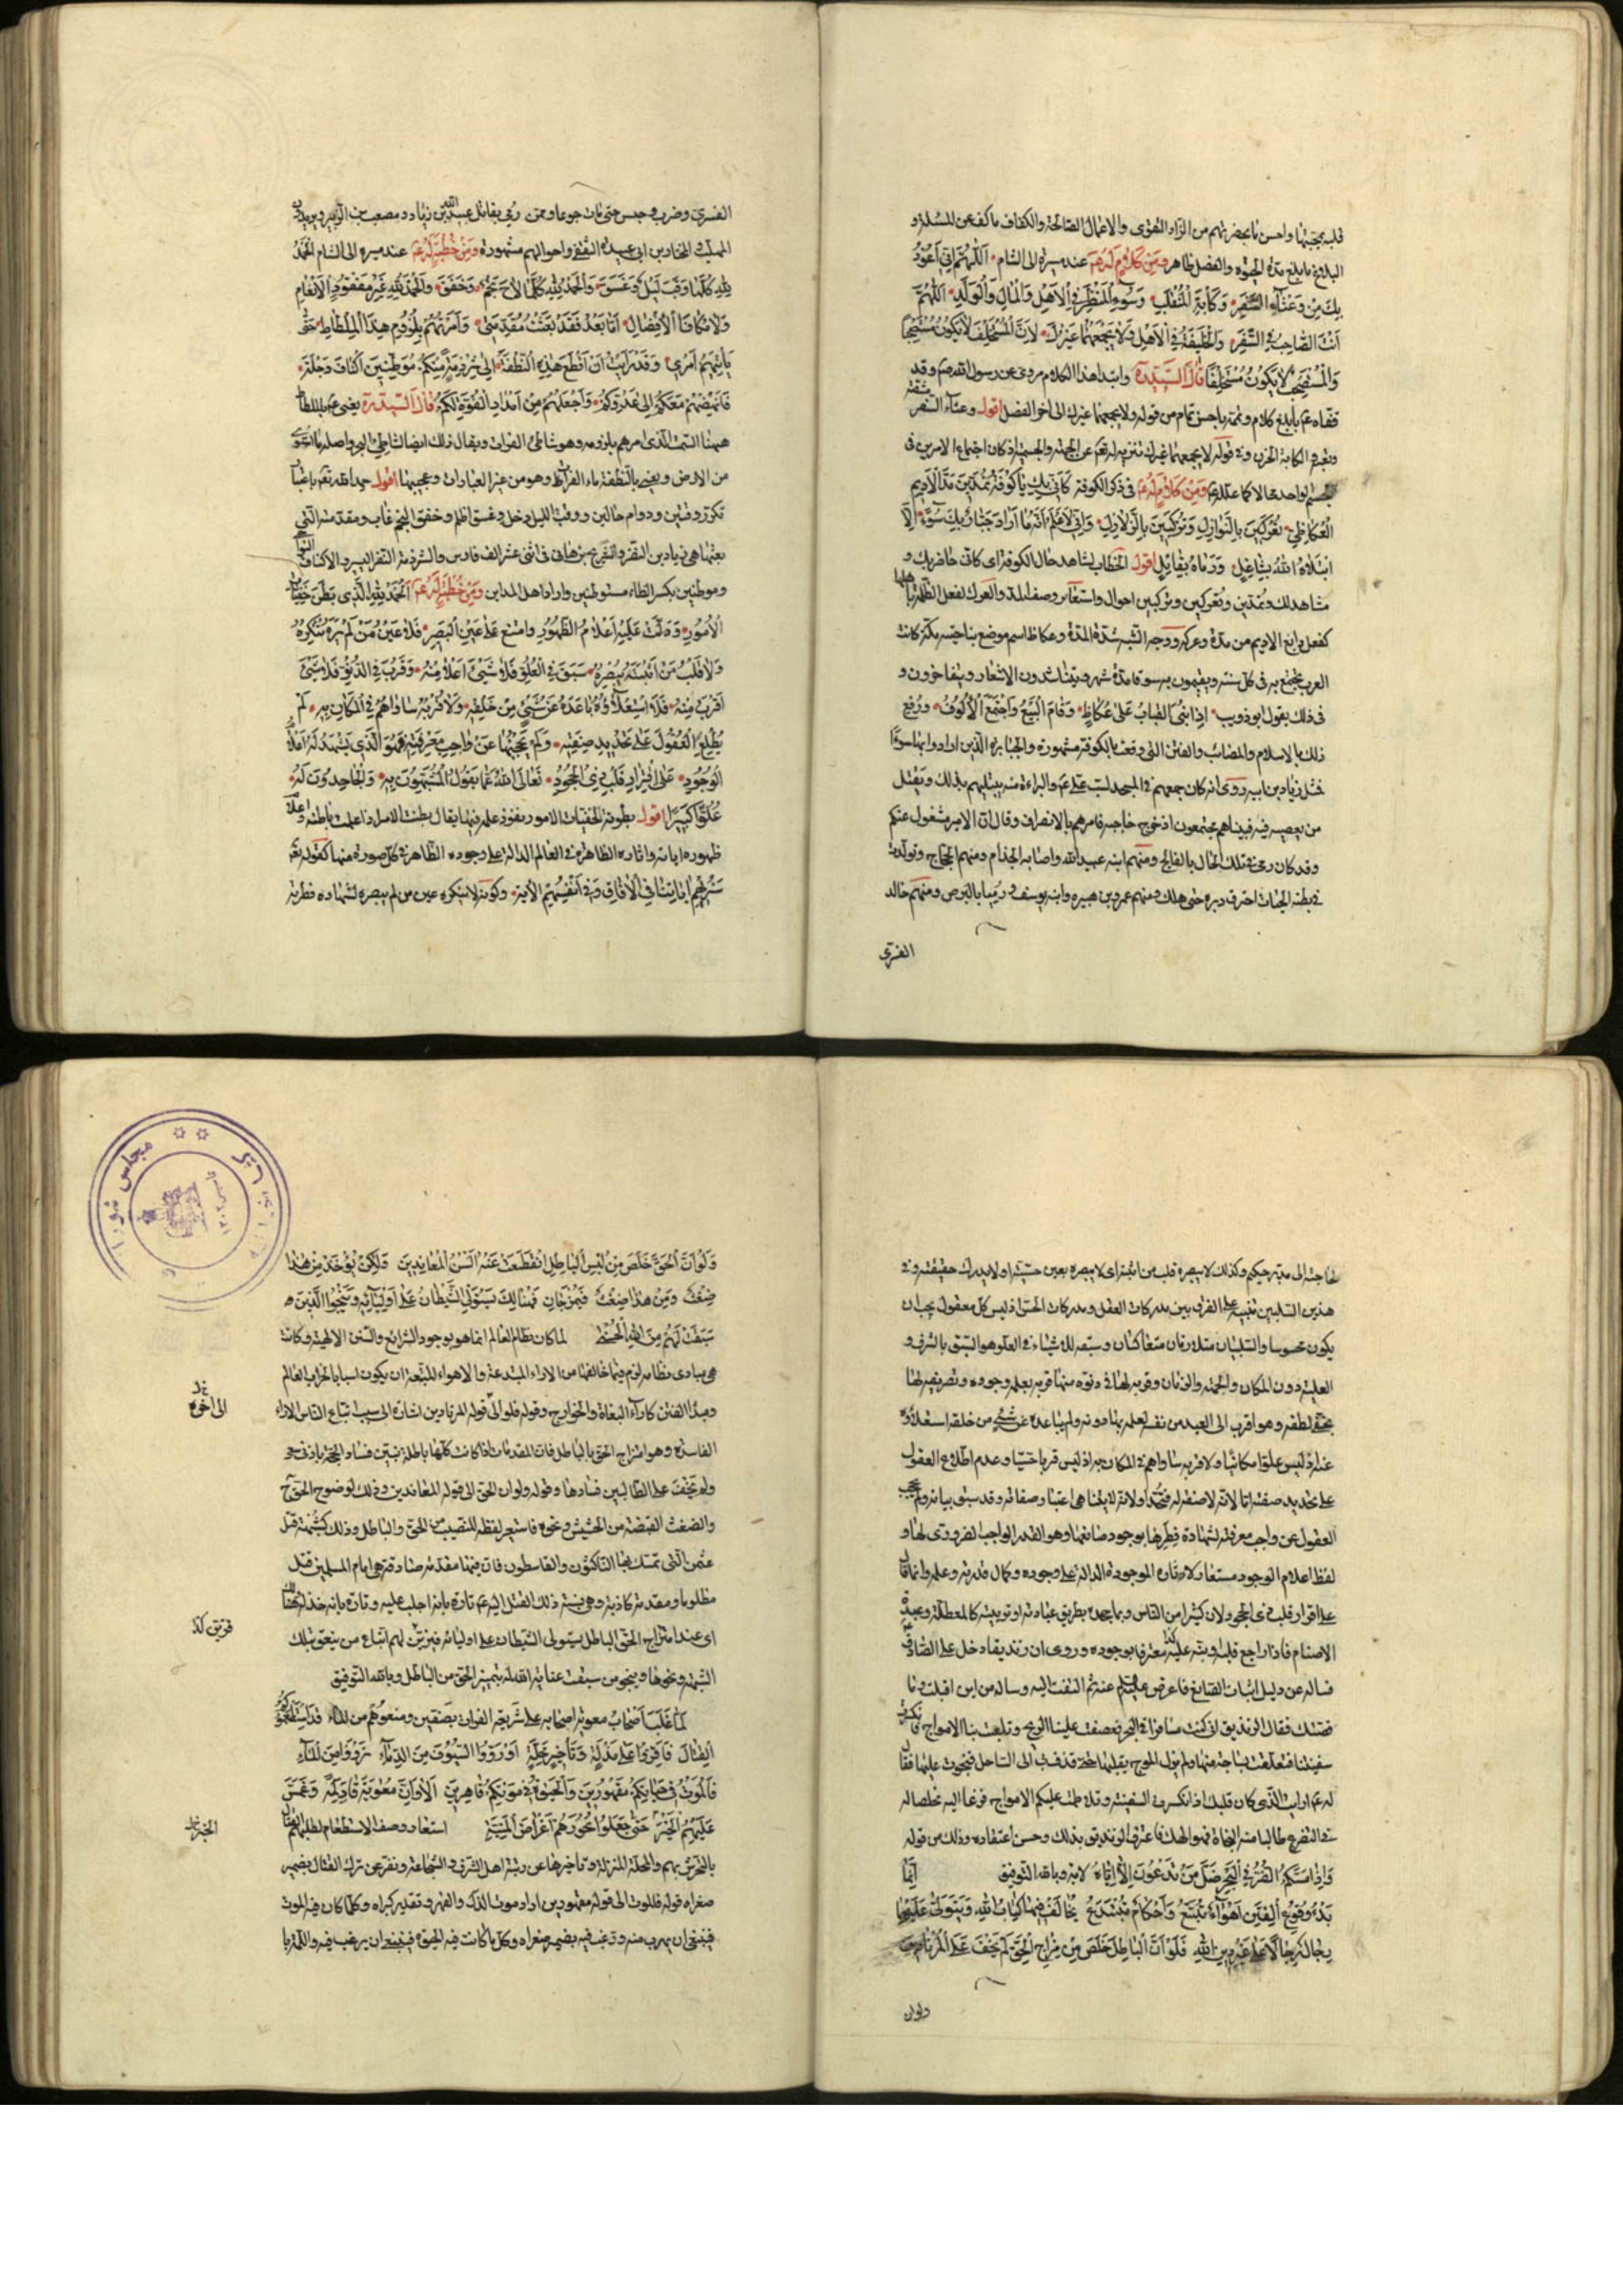 قلبه بمحبتها واحسن ما يحضرتهم من الزاد التقوى والاعمال الصالحة والكفاف ما كف عن المسئلة و
البلاغ ما بلغ مدة الحيوة والفضل ظاهر ومن كلام له عم عند مسيره الى الشام اللهم انى اعوذ
بك من وعثاء السفر وكآبة المنقلب وسوء المنظر فى الاهل والمال والولد اللهم
انت الصاحب فى السفر والخليفة فى الاهل ولا يجمعهما غيرك لان المستخلف لا يكون مستصحبا
والمستصحب لا يكون مستخلفا قال السيد وابتداء هذا الكلام مروى عن رسول الله صم وقد
قفاه عم بابلغ كلام وتممه باحسن تمام من قوله ولا يجمعهما غيرك الى آخر الفصل اقول وعثاء السفر مشقته
الكآبة الحزن وفى قوله لا يجمعهما غيرك تنزيه له تعم عن الجهة والجسمية اذ كان اجتماع الامرين فى
لواحد محالا كما علله عم ومن كلام له عم فى ذكر الكوفة كانى بك يا كوفة تمدين مد الاديم
العكاظى تعركين بالنوازل وتركبين بالزلازل وانى لاعلم انه ما اراد جبار بك سوءا الا
ابتلاه الله بشاغل ورماه بقاتل اقول الخطاب لشاهد حال الكوفة اى كانى حاضر بك و
مشاهد لك وتمدين وتعركين وتركبين احوال واستعار وصف المد والعرك لفعل الظلمة باهلها
كفعل دابغ الاديم من مده وعركه ووجه الشبه شدة المدة وعكاظ اسم موضع بناحية مكة كانت
العرب تجتمع به فى كل سنة ويقيمون به سوقا مدة شهر ويتناشدون الاشعار ويتفاخرون و
فى ذلك يقول ابو ذويب اذا بنى القباب على عكاظ وقام البيع واجتمع الالوف ورفع
ذلك بالاسلام والمصائب والفتن التى وقعت بالكوفة مشهورة والجبابرة الذين ارادوا بها سوءا
مثل زياد بن ابيه روى انه كان جمعهم فى المسجد لسب على عم والبراءة منه يبتليهم بذلك ويقتل
من يعصيه فيه فبيناهم مجتمعون اذ خرج حاجبه فامرهم بالانصراف وقال ان الامير مشغول عنكم
وقد كان رمى فى تلك الحال بالفالج ومنهم ابنه عبيد الله واصابه الجذام ومنهم الحجاج وتولدت
فى بطنه الحيات احترق دبره حتى هلك ومنهم عمرو بن هبيره وابنه يوسف ورميا بالبرص ومنهم خالد
القسرى
القسرى وضرب وحبس حتى مات جوعا وممن رمى بقاتل عبيد الله بن زياد ومصعب بن الزبير ويزيد بن
المهلب والمختار بن ابى عبيدة الثقفى واحوالهم مشهورة ومن خطبة له عم عند مسيره الى الشام الحمد
لله كلما وقب ليل وغسق والحمد لله كلما لاح نجم وخفق والحمد لله غير مفقود الانعام
ولا مكافا الافضال اما بعد فقد بعثت مقدمتى وامرتهم بلزوم هذا الملطاط حتى
ياتيهم امرى وقد رايت ان اقطع هذه النطفة الى شرذمة منكم موطنين اكناف دجلة
فانهضهم معكم الى عدوكم واجعلهم من امداد القوة لكم قال السيد يعنى عم بالملطاط
ههنا السمت الذى امرهم بلزومه وهو شاطئ الفرات ويقال ذلك ايضا لشاطئ البحر واصله ما استوى
من الارض ويعنى بالنطفة ماء الفرات وهو من غير العبارات وعجيبها اقول حمد الله تعم باعتبار
تكرر وقتين ودوام حالين ووقب الليل دخل وغسق اظلم وخفق النجم غاب ومقدمته التى
بعثها هى زياد بن النضر وشريح بن هانى فى اثنى عشر الف فارس والشرذمة النفر اليسير والاكناف النواحى
وموطنين بكسر الطاء مستوطنين واراد اهل المداين ومن خطبة له عم الحمد لله الذى بطن خفيات
الامور ودلت عليه اعلام الظهور وامتنع على عين البصير فلا عين من لم يره تنكره
ولا قلب من اثبته يبصره سبق فى العلو فلا شئ اعلا منه وقرب فى الدنو فلا شئ
اقرب منه فلا استعلاؤه باعده عن شئ من خلقه ولا قربه ساواهم فى المكان به لم
يطلع العقول على تحديد صفته ولم يحجبها عن واجب معرفته فهو الذى تشهد له اعلام
الوجود على اقرار قلب ذى الجحود تعالى الله عما يقول المشبهون به والجاحدون له
علوا كبيرا اقول بطونه لخفيات الامور نفوذ علمه فيها يقال بطنت الامر اذا علمت باطنه واعلام
ظهوره اياته واثاره الظاهرة فى العالم الدالة على وجوده الظاهر فى كل صورة منها كقوله تعم
سنريهم اياتنا فى الافاق وفى انفسهم الاية وكونه لا ينكره عين من لم يبصره لشهادة فطرته
حاجته الى مدبر حكيم وكذلك لا يبصره قلب من اثبته اى لا يبصره بعين حسية اولا يدرك حقيقته وفى
هذين السلبين تنبيه على الفرق بين مدركات العقل ومدركات الحس اذ ليس كل معقول يجب ان
يكون محسوسا والسلبان متلازمان متعاكسان وسبقه للاشياء فى العلو هو السبق بالشرف و
العلية دون المكان والجهة والزمان وقربه لها فى دنوه منها قربه بعلمه وجوده وتصريفه لها
بخفى لطفه وهو اقرب الى العبد من نفسه لعلمه بها دونه ولم يباعده عن شئ من خلقه استعلاؤه
عنه اذ ليس علوا مكانيا ولا قربه ساواهم فى المكان به اذ ليس قربا حسيا وعدم اطلاع العقول
على تحديد صفته اما لانه لا صفة له فتحد او لانه لا يتناهى اعتبارات صفاته وقد سبق بيانه ولم يحجب
العقول عن واجب معرفته لشهادة فطرها بوجود صانعها وهو القدر الواجب الضرورى لها و
لفظ اعلام الوجود مستعار لاثاره الموجودة الدالة على وجوده وكمال قدرته وعلمه وانما قال
على اقرار قلب ذى الجحود لان كثيرا من الناس ربما يجحده بطريق عبادته او تربيته كالمعطلة وعبدة
الاصنام فاذا راجع قلبه ونبه عليه كان معترفا بوجوده وروى ان زنديقا دخل على الصادق عم
فساله عن دليل اثبات الصانع فاعرض عليلم عنه ثم التفت اليه وساله من اين اقبلت وما
قصتك فقال الزنديق انى كنت مسافرا فى البحر فعصفت علينا الريح وتلعبت بنا الامواج فانكسرت
سفينتنا فتعلقت بساجة منها ولم يزل الموج يقلبها حتى قذفت الى الساحل فنجوت عليها فقال
له عم ارايت الذى كان قلبك اذ انكسرت السفينة وتلاطمت عليكم الامواج فزعا اليه مخلصا له
فى التضرع طالبا منه النجاة فهو الهك فاعترف الزنديق بذلك وحسن اعتقاده وذلك من قوله
واذا مسكم الضر فى البحر ضل من تدعون الا اياه الاية وبالله التوفيق انما
بدء وقوع الفتن اهواء تتبع واحكام تبتدع يخالف فيها كتاب الله ويتولى عليها
رجال رجالا على غير دين الله فلو ان الباطل خلص من مزاج الحق لم يخف على المرتادين
ولوان
ولو ان الحق خلص من لبس الباطل انقطعت عنه السن المعاندين ولكن يؤخذ من هذا
ضغث ومن هذا ضغث فيمزجان فهنالك يستولى الشيطان على اوليائه وينجوا الذين
سبقت لهم من الله الحسنى لما كان نظام العالم انما هو بوجود الشرائع والسنن الالهية وكانت
هى مبادى نظامه لزم فيما خالفها من الاراء المبتدعة والاهواء المتبعة ان يكون اسبابا لخراب العالم
ومبدء الفتن كاراء البغاة والخوارج وقوله فلو الى قوله المرتادين اشارة الى سبب اتباع الناس الاراء
الفاسدة وهو امتزاج الحق بالباطل فان المقدمات اذا كانت كلها باطلة تبين فساد الحجة بادنى سعى
ولم تخف على الطالبين فسادها وقوله ولو ان الحق الى قوله المعاندين وذلك لوضوح الحق ح
والضغث القبضة من الحشيش ونحوه فاستعير لفظه للنصيب من الحق والباطل وذلك كشبهة قتل
عثمن التى تمسك بها الناكثون والقاسطون فان فيها مقدمة صادقة هى امام المسلمين قتل
مظلوما ومقدمة كاذبة وهى نسبة ذلك القتل اليه عم تارة بانه اجلب عليه وتارة بانه خذله فهنالك
اى عند امتزاج الحق بالباطل يستولى الشيطان على اوليائه فيزين لهم اتباع من ينعق بتلك
الشبهة ونحوها وينجو من سبقت عناية الله له بتميز الحق من الباطل وبالله التوفيق
لما غلب اصحاب معوية اصحابه على شريعة الفرات بصفين ومنعوهم من الماء قد استطعموكم
القتال فاقروا على مذلة وتاخير محلة او رووا السيوف من الدماء ترووا من الماء
فالموت فى حياتكم مقهورين والحيوة فى موتكم قاهرين الا وان معوية قاد لمة وعمس
عليهم الخبر حتى جعلوا نحورهم اغراض المنية استعار وصف الاستطعام لطلبهم القتال
بالتحرش بهم والمحلة المنزلة وتاخيرها عن رتبة اهل الشرف والشجاعة ونفر عن ترك القتال بضمير
صغراه قوله فالموت الى قوله مقهورين اراد موت الذل والقهر وتقدير كبراه وكلما كان فيه الموت
فينبغى ان يهرب منه ورغب فيه بضمير صغراه وكل ما كانت فيه الحيوة فينبغى ان يرغب فيه واللمة با
الى اخره
فريق كذا